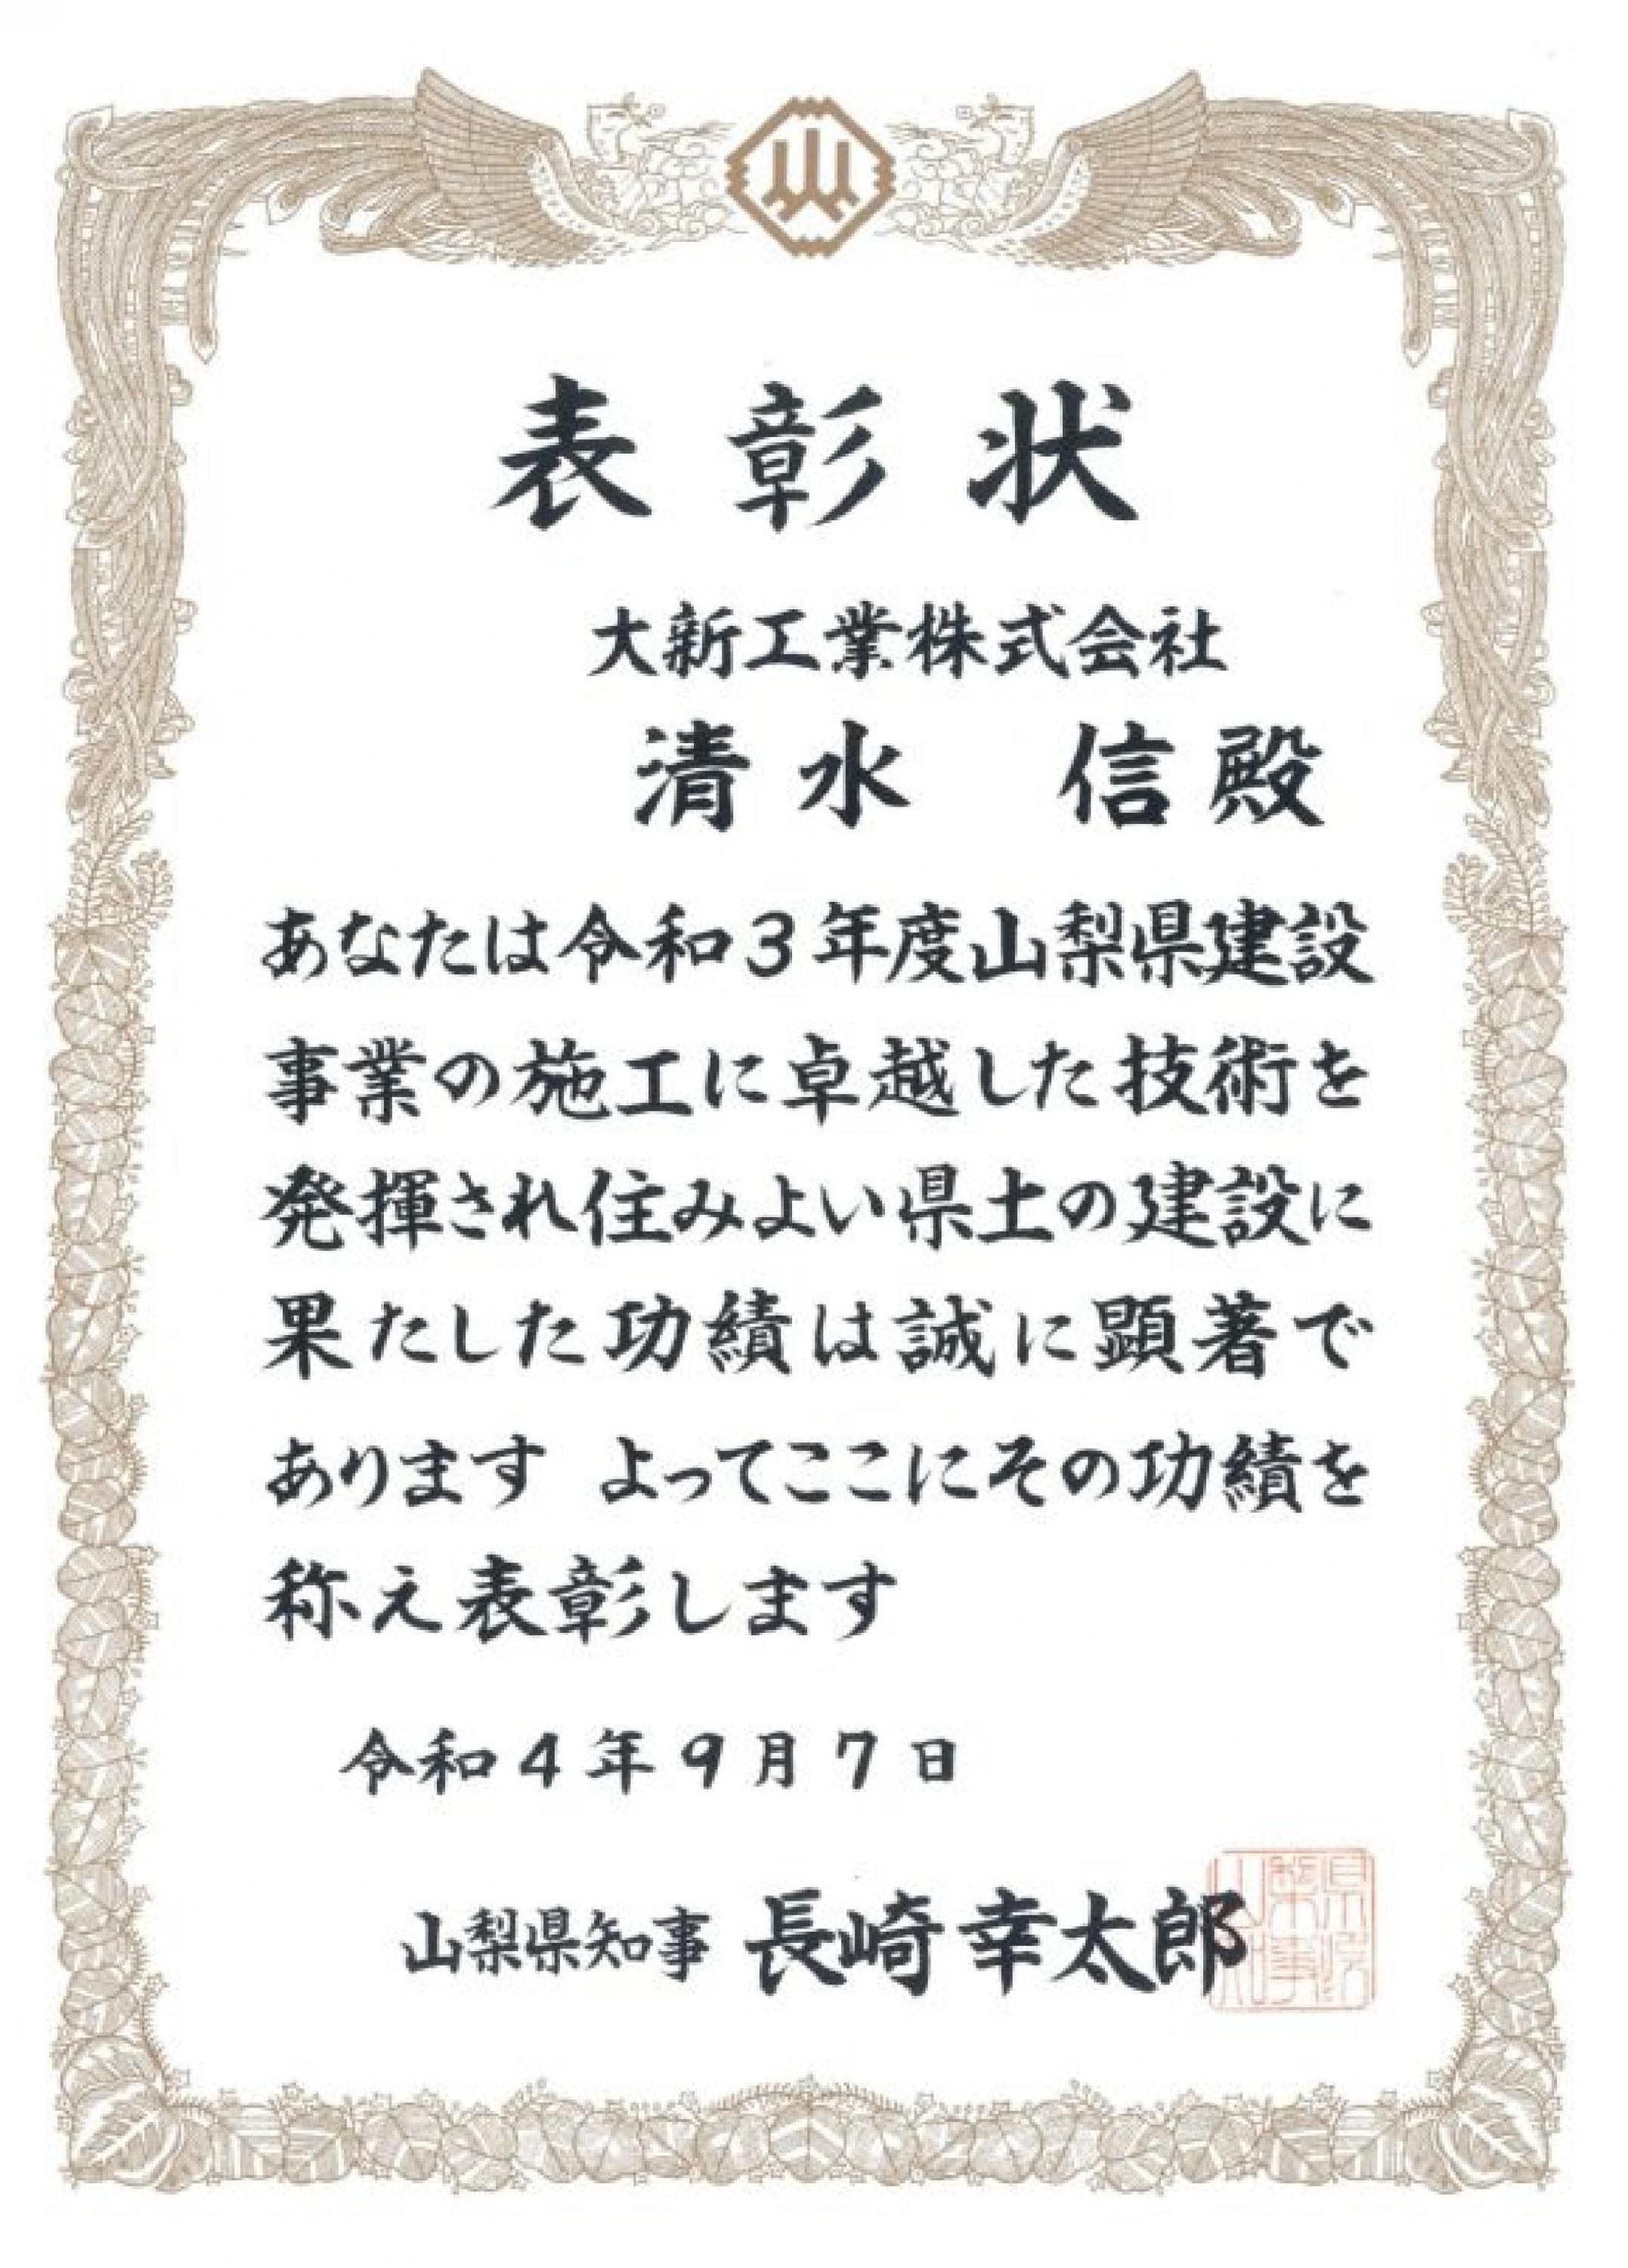 表彰状
大新工業株式会社
清水 信殿
あなたは令和3年度山梨県建設
事業の施工に卓越した技術を
発揮され住みよい県土の建設に
果たした功績は誠に顕著で
あります よってここにその功績を
称え表彰します
令和4年9月7日
山梨県知事 長崎幸太郎